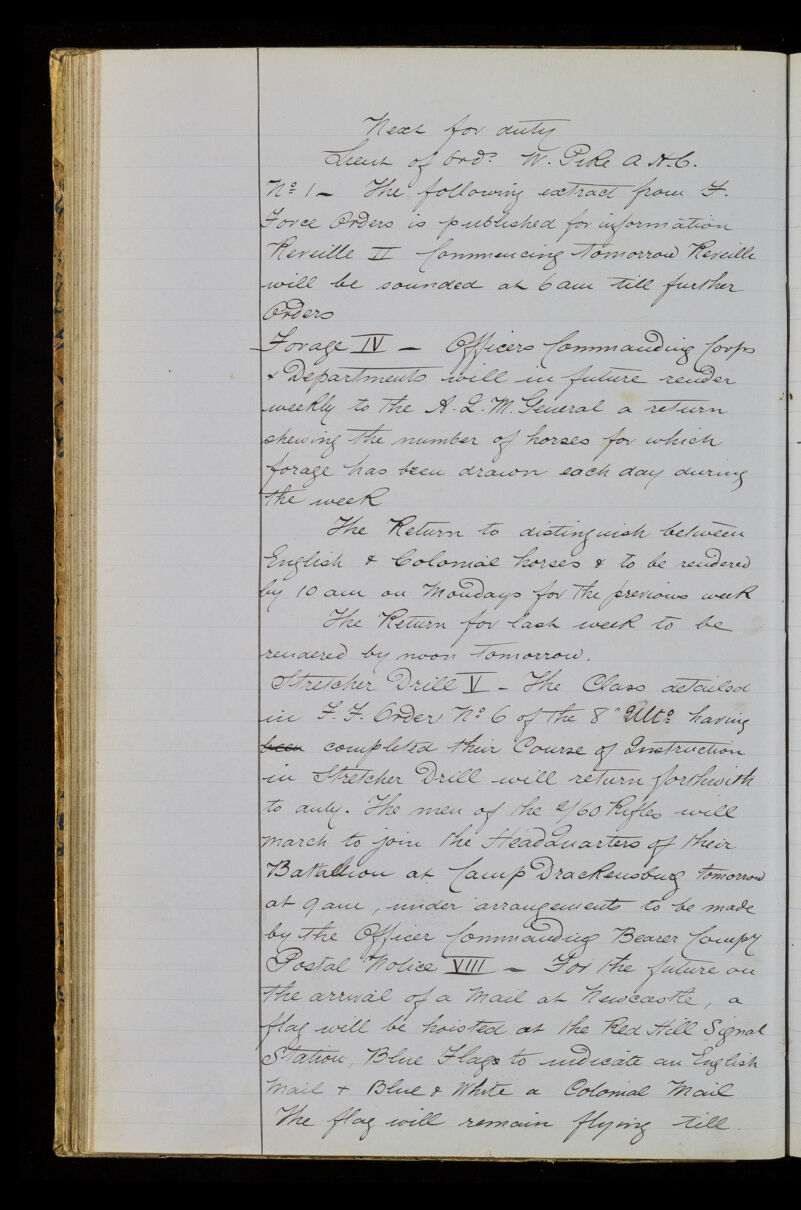 Next for duty
Lieut of Ord? W. Pike A H.C.
No 1 - The following extract from F.
Force Orders is published for information
Reveille II Commencing tomorrow Reveille
will be sounded at 6 am till further
Orders
Forage IV - Officers Commanding Corps
& Departments will in future render
weekly to the A.Q.M. General a return
shewing the number of horses for which
forage has been drawn each day during
the week
The Return to distinguish between
English & Colonial horses & to be rendered
by 10 am on Mondays for the previous week
The Return for last week to be
rendered by noon tomorrow.
Stretcher Drill V - The Class detailed
in F.F. Order No 6 of the 8" Ulto having
been completed their Course of Instruction
in Stretcher Drill will return forthwith
to duty. The men of the 2/60 Rifles will
march to join the HeadQuarters of their
Batallion at Camp Drackensburg tomorrow
at 9 am, under arrangements to be made
by the Officer Commanding Bearer Compy
Postal Notice VIII - For the future on
the arrival of a Mail at Newcastle, a
flag will be hoisted at the Red Hill Signal
Station, Blue Flags to indicate an English
Mail + Blue & White a Colonial Mail
The flag will remain flying till.